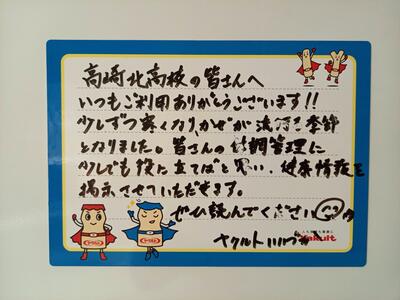 高崎北高校の皆さんへ
いつもご利用ありがとうございます!!
少しずつ寒くなり、かぜが流行る季節
となりました。皆さんの体調管理に
少しでも役に立てばと思い、健康情報を
掲示させていただきます。
ぜひ読んでください
ヤクルト いいづか
Yakult